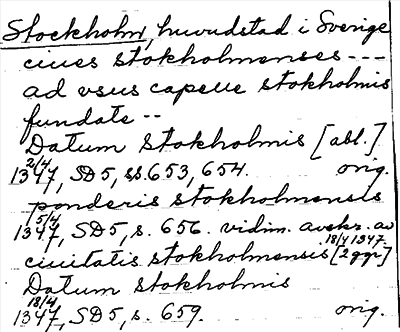 Stockholm, huvudstad i Sverige
ciues stokholmenses ---
ad vsus capelle stokholmis
fundate --
Datum stokholmis [abl.]
2/4
1347, SD5, ss. 653, 654. orig.
ponderis stokholmensis
5/4
1347, SD5, s. 656. vidim. avskr. av
18/4 1347.
ciuitatis stokholmensis [2 ggr]
Datum stokholmis
18/4
1347, SD5, s. 659. orig.